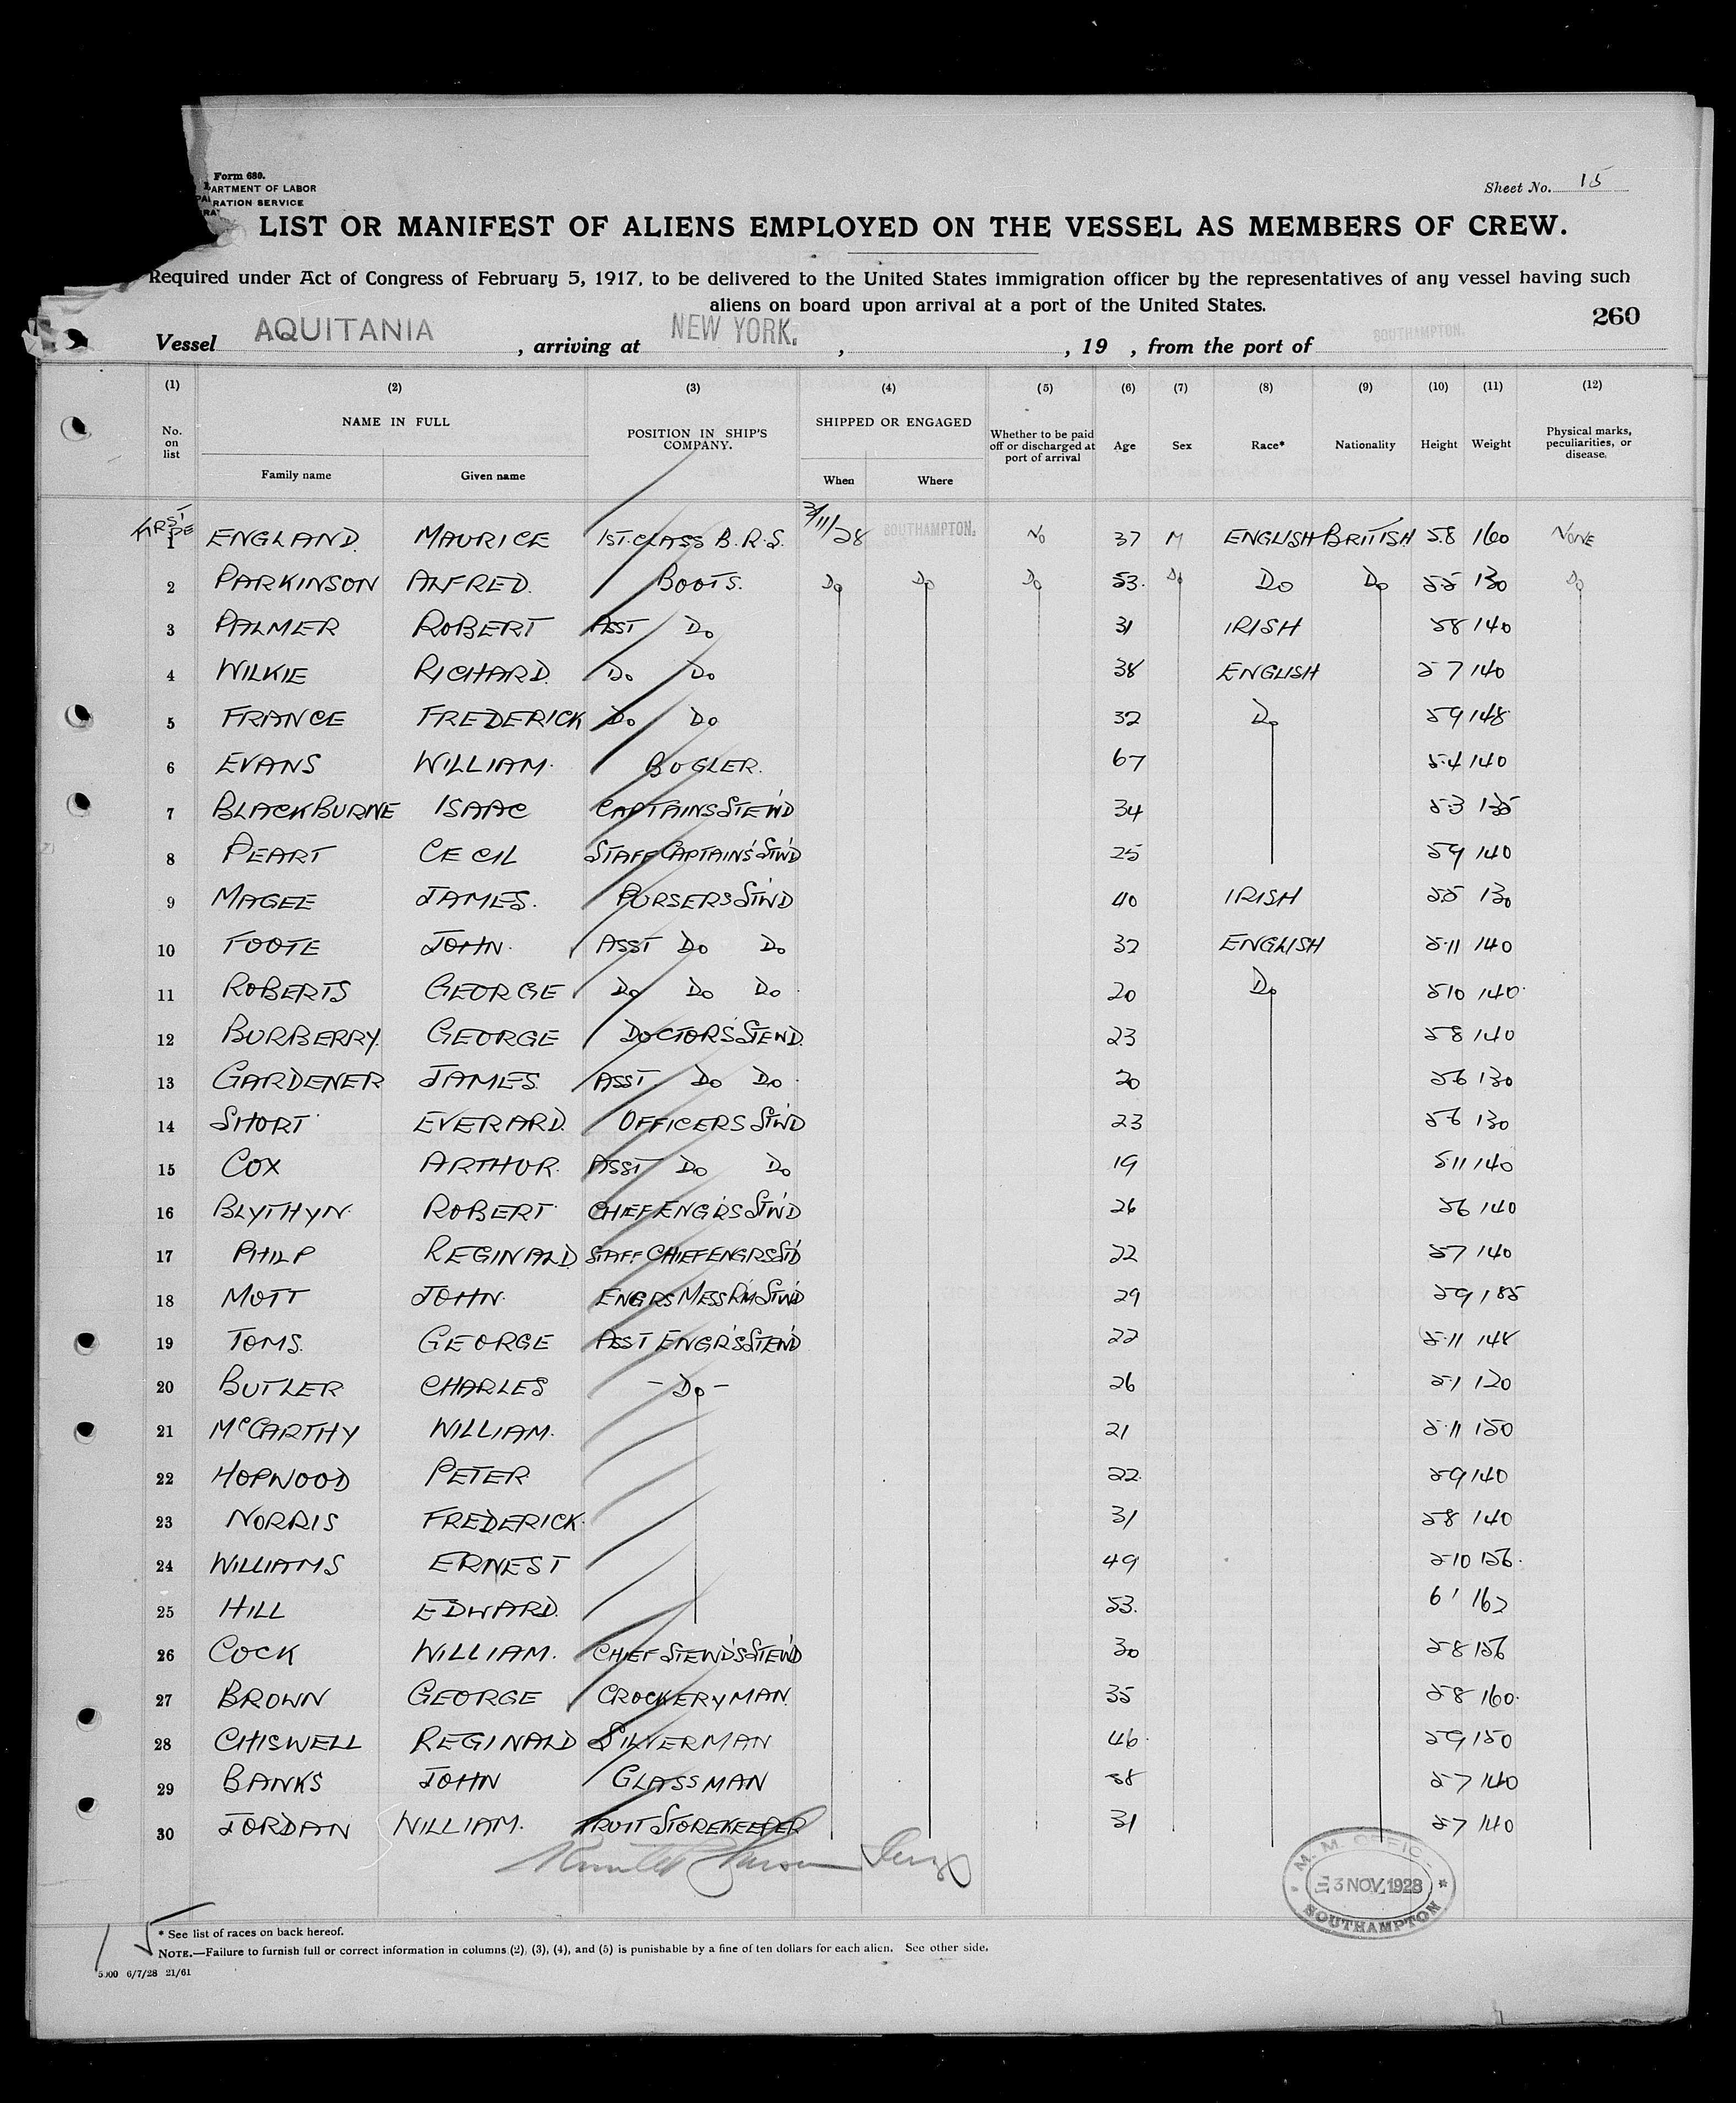 Form 680.
PARTMENT OF LABOR
RATION SERVICE
Sheet No. 15
LIST OR MANIFEST OF ALIENS EMPLOYED ON THE VESSEL AS MEMBERS OF CREW.
Required under Act of Congress of February 5, 1917, to be delivered to the United States immigration officer by the representatives of any vessel having such
aliens on board upon arrival at a port of the United States.
260
Vessel AQUITANIA, arriving at NEW YORK., , 19 , from the port of SOUTHAMPTON.
(1) (2) (3) (4) (5) (6) (7) (8) (9) (10) (11) (12)
No. on list NAME IN FULL POSITION IN SHIP'S COMPANY. SHIPPED OR ENGAGED Whether to be paid off or discharged at port of arrival Age Sex Race* Nationality Height Weight Physical marks, peculiarities, or disease.
Family name Given name When Where
1 ENGLAND. MAURICE 1ST. CLASS B.R.S. 3/11/28 SOUTHAMPTON. No 37 M ENGLISH BRITISH 58 160 NONE
2 PARKINSON ALFRED. BOOTS. Do Do Do 53. Do Do Do 55 130 Do
3 PALMER ROBERT ASST Do 31 IRISH 58 140
4 WILKIE RICHARD. Do Do 38 ENGLISH 57 140
5 FRANCE FREDERICK Do Do 32 Do 59 148
6 EVANS WILLIAM. BUGLER. 67 5.4 140
7 BLACKBURNE ISAAC CAPTAINS STEW'D 34 5.3 135
8 PEART CECIL STAFF CAPTAIN'S ST'W'D 25 59 140
9 MAGEE JAMES. PURSERS ST'W'D 40 IRISH 55 130
10 FOOTE JOHN. ASST Do Do 32 ENGLISH 5.11 140
11 ROBERTS GEORGE Do Do Do 20 Do 510 140
12 BURBERRY. GEORGE DOCTOR'S STEW'D. 23 58 140
13 GARDENER JAMES. ASST. Do Do 20 56 130
14 SHORT EVERARD. OFFICERS ST'W'D 23 56 130
15 COX ARTHUR. ASST Do Do 19 5.11 140
16 BLYTHYN. ROBERT CHIEF ENGR'S ST'W'D 26 56 140
17 PHILP REGINALD. STAFF CHIEF ENGRS ST'D 22 57 140
18 MOTT JOHN. ENGRS MESS R'M ST'W'D 29 59 185
19 TOMS. GEORGE ASST ENGR'S STEW'D 22 5.11 148
20 BUTLER CHARLES - Do - 26 5.1 120
21 McCARTHY WILLIAM. 21 5.11 150
22 HOPWOOD PETER 22. 59 140
23 NORRIS FREDERICK. 31 58 140
24 WILLIAMS ERNEST 49 5-10 156.
25 HILL EDWARD. 53. 6' 162
26 COCK WILLIAM. CHIEF STEW'D'S STEW'D 30 58 156
27 BROWN GEORGE CROCKERYMAN. 35 58 160.
28 CHISWELL REGINALD SILVERMAN 46. 59 150
29 BANKS JOHN GLASSMAN 58 57 140
30 JORDAN WILLIAM. FRUIT STOREKEEPER 31 57 140
M. M. OFFICE
3 NOV. 1928
SOUTHAMPTON
* See list of races on back hereof.
NOTE.—Failure to furnish full or correct information in columns (2), (3), (4), and (5) is punishable by a fine of ten dollars for each alien. See other side.
5000 6/7/28 21/61